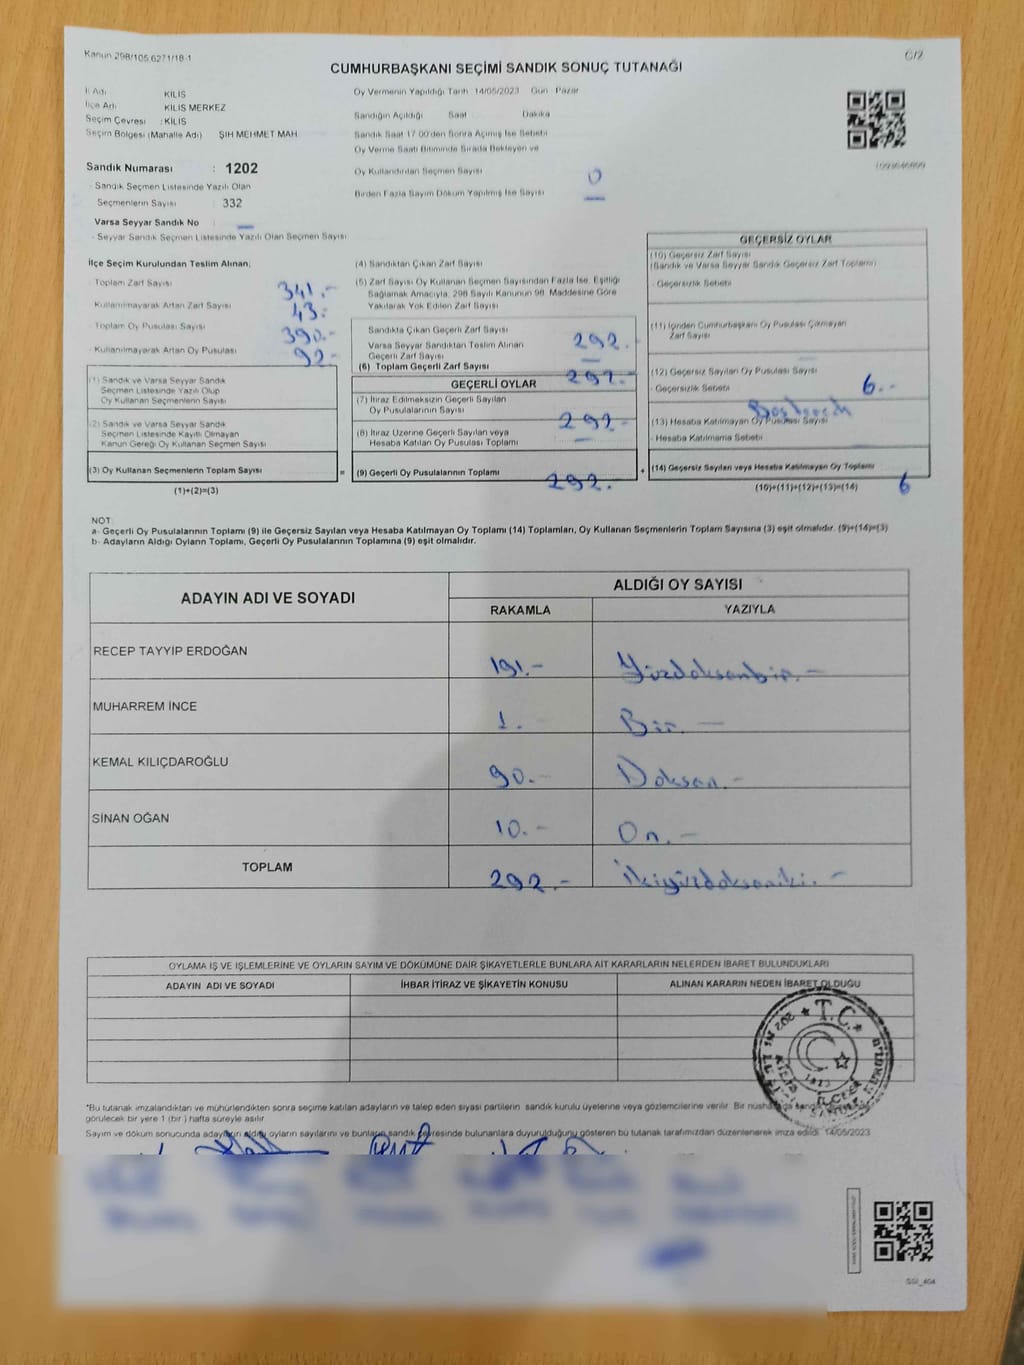 Kanun 298/105,6271/18-1
C/2
CUMHURBAŞKANI SEÇİMİ SANDIK SONUÇ TUTANAĞI
İl Adı KİLİS
İlçe Adı KİLİS MERKEZ
Seçim Çevresi : KİLİS
Seçim Bölgesi (Mahalle Adı) ŞIH MEHMET MAH
Oy Vermenin Yapıldığı Tarih 14/05/2023 Gün Pazar
Sandığın Açıldığı Saat Dakika
Sandık Saat 17 00'den Sonra Açılmış İse Sebebi
Oy Verme Saati Bitiminde Sırada Bekleyen ve
Oy Kullandırılan Seçmen Sayısı 0
Birden Fazla Sayım Döküm Yapılmış İse Sayısı —
Sandık Numarası : 1202
- Sandık Seçmen Listesinde Yazılı Olan
Seçmenlerin Sayısı : 332
Varsa Seyyar Sandık No : —
- Seyyar Sandık Seçmen Listesinde Yazılı Olan Seçmen Sayısı
İlçe Seçim Kurulundan Teslim Alınan;
- Toplam Zarf Sayısı 341.-
- Kullanılmayarak Artan Zarf Sayısı 43.-
- Toplam Oy Pusulası Sayısı 390.-
- Kullanılmayarak Artan Oy Pusulası 92.-
(1) Sandık ve Varsa Seyyar Sandık
Seçmen Listesinde Yazılı Olup
Oy Kullanan Seçmenlerin Sayısı
(2) Sandık ve Varsa Seyyar Sandık
Seçmen Listesinde Kayıtlı Olmayan
Kanun Gereği Oy Kullanan Seçmen Sayısı
(3) Oy Kullanan Seçmenlerin Toplam Sayısı
(1)+(2)=(3)
=
(4) Sandıktan Çıkan Zarf Sayısı
(5) Zarf Sayısı Oy Kullanan Seçmen Sayısından Fazla İse, Eşitliği
Sağlamak Amacıyla, 298 Sayılı Kanunun 98. Maddesine Göre
Yakılarak Yok Edilen Zarf Sayısı
Sandıkta Çıkan Geçerli Zarf Sayısı 292.
Varsa Seyyar Sandıktan Teslim Alınan
Geçerli Zarf Sayısı —
(6) Toplam Geçerli Zarf Sayısı 292.-
GEÇERLİ OYLAR
(7) İtiraz Edilmeksizin Geçerli Sayılan
Oy Pusulalarının Sayısı 292.-
(8) İtiraz Üzerine Geçerli Sayılan veya
Hesaba Katılan Oy Pusulası Toplamı —
(9) Geçerli Oy Pusulalarının Toplamı 292.-
+
GEÇERSİZ OYLAR
(10) Geçersiz Zarf Sayısı
(Sandık ve Varsa Seyyar Sandık Geçersiz Zarf Toplamı)
- Geçersizlik Sebebi
(11) İçinden Cumhurbaşkanı Oy Pusulası Çıkmayan
Zarf Sayısı —
(12) Geçersiz Sayılan Oy Pusulası Sayısı
- Geçersizlik Sebebi 6.-
(13) Hesaba Katılmayan Oy Pusulası Sayısı
- Hesaba Katılmama Sebebi
(14) Geçersiz Sayılan veya Hesaba Katılmayan Oy Toplamı
(10)+(11)+(12)+(13)=(14) 6
NOT:
a- Geçerli Oy Pusulalarının Toplamı (9) ile Geçersiz Sayılan veya Hesaba Katılmayan Oy Toplamı (14) Toplamları, Oy Kullanan Seçmenlerin Toplam Sayısına (3) eşit olmalıdır. (9)+(14)=(3)
b- Adayların Aldığı Oyların Toplamı, Geçerli Oy Pusulalarının Toplamına (9) eşit olmalıdır.
ADAYIN ADI VE SOYADI
ALDIĞI OY SAYISI
RAKAMLA YAZIYLA
RECEP TAYYİP ERDOĞAN 191.- Yüzdoksanbir.-
MUHARREM İNCE 1.- Bir.-
KEMAL KILIÇDAROĞLU 90.- Doksan.-
SİNAN OĞAN 10.- On.-
TOPLAM 292.- İkiyüzdoksaniki.-
OYLAMA İŞ VE İŞLEMLERİNE VE OYLARIN SAYIM VE DÖKÜMÜNE DAİR ŞİKAYETLERLE BUNLARA AİT KARARLARIN NELERDEN İBARET BULUNDUKLARI
ADAYIN ADI VE SOYADI İHBAR İTİRAZ VE ŞİKAYETİN KONUSU ALINAN KARARIN NEDEN İBARET OLDUĞU
T.C.
1202 NO'LU
KİLİS
1923
İLÇE
SANDIK KURULU
*Bu tutanak imzalandıktan ve mühürlendikten sonra seçime katılan adayların ve talep eden siyasi partilerin sandık kurulu üyelerine veya gözlemcilerine verilir. Bir nüshası
görülecek bir yere 1 (bir ) hafta süreyle asılır.
Sayım ve döküm sonucunda adayların aldığı oyların sayılarını ve bunların sandık çevresinde bulunanlara duyurulduğunu gösteren bu tutanak tarafımızdan düzenlenerek imza edildi. 14/05/2023
SSI_404